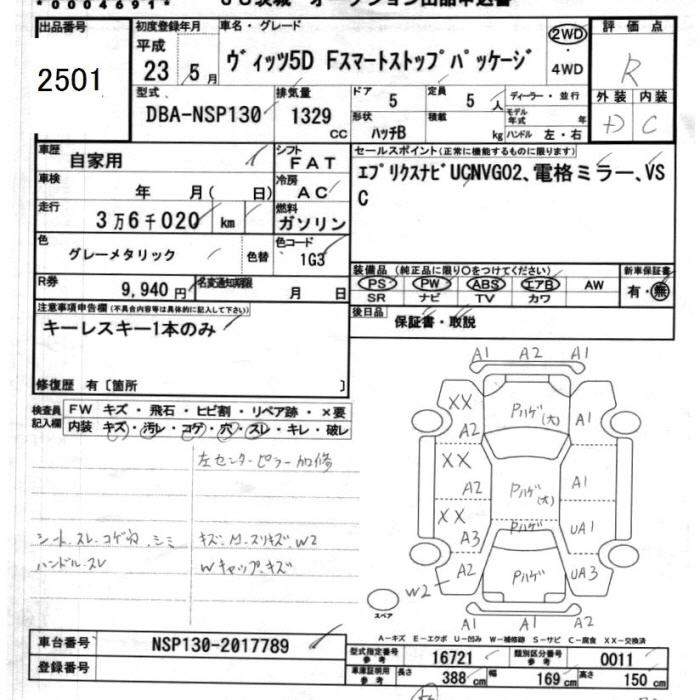 *0004691*
オークション出品申込書
出品番号
2501
初度登録年月
平成
23 5月
車名・グレード
ヴィッツ5D Fスマートストップパッケージ
2WD
4WD
評価点
R
外装 内装
D C
型式
DBA-NSP130
排気量
1329
cc
ドア
5
定員
5 人
形状
ハッチB
積載
kg
ディーラー・並行
モデル年式 年
ハンドル 左・右
車歴
自家用
シフト
FAT
車検
年 月( 日)
冷房
AC
走行
3万6千020 km
燃料
ガソリン
色
グレーメタリック
色替
色コード
1G3
セールスポイント(正常に機能するものに限ります)
エプリクスナビUCNVG02、電格ミラー、VS
C
R券
9,940円
名変通知期限
月 日
装備品(純正品に限り〇をつけてください)
PS PW ABS エアB AW
SR ナビ TV カワ
新車保証書
有・無
後日品
保証書・取説
注意事項申告欄(不具合内容等は具体的に記入して下さい)
キーレスキー1本のみ
修復歴 有〔箇所 〕
検査員記入欄
FW キズ・飛石・ヒビ割・リペア跡・×要
内装 キズ・汚レ・コゲ・穴・スレ・キレ・破レ
左センターピラー加修
シート.スレ.コゲ穴.シミ
キズ.M.スリキズ.W2
ハンドル.スレ
Wキャップ.キズ
A1 A2 A1
XX
Pハゲ(大)
A1
A2
XX
A2
Pハゲ(大)
A1
XX
Pハゲ
UA1
A3
W2
A2
Pハゲ
UA3
A1 A1 A2
スペア
A-キズ E-エクボ U-凹み W-補修跡 S-サビ C-腐食 XX-交換済
車台番号
NSP130-2017789
登録番号
型式指定番号
参考
16721
類別区分番号
参考
0011
車庫証明用
参考
長さ
388 cm
幅
169 cm
高さ
150 cm